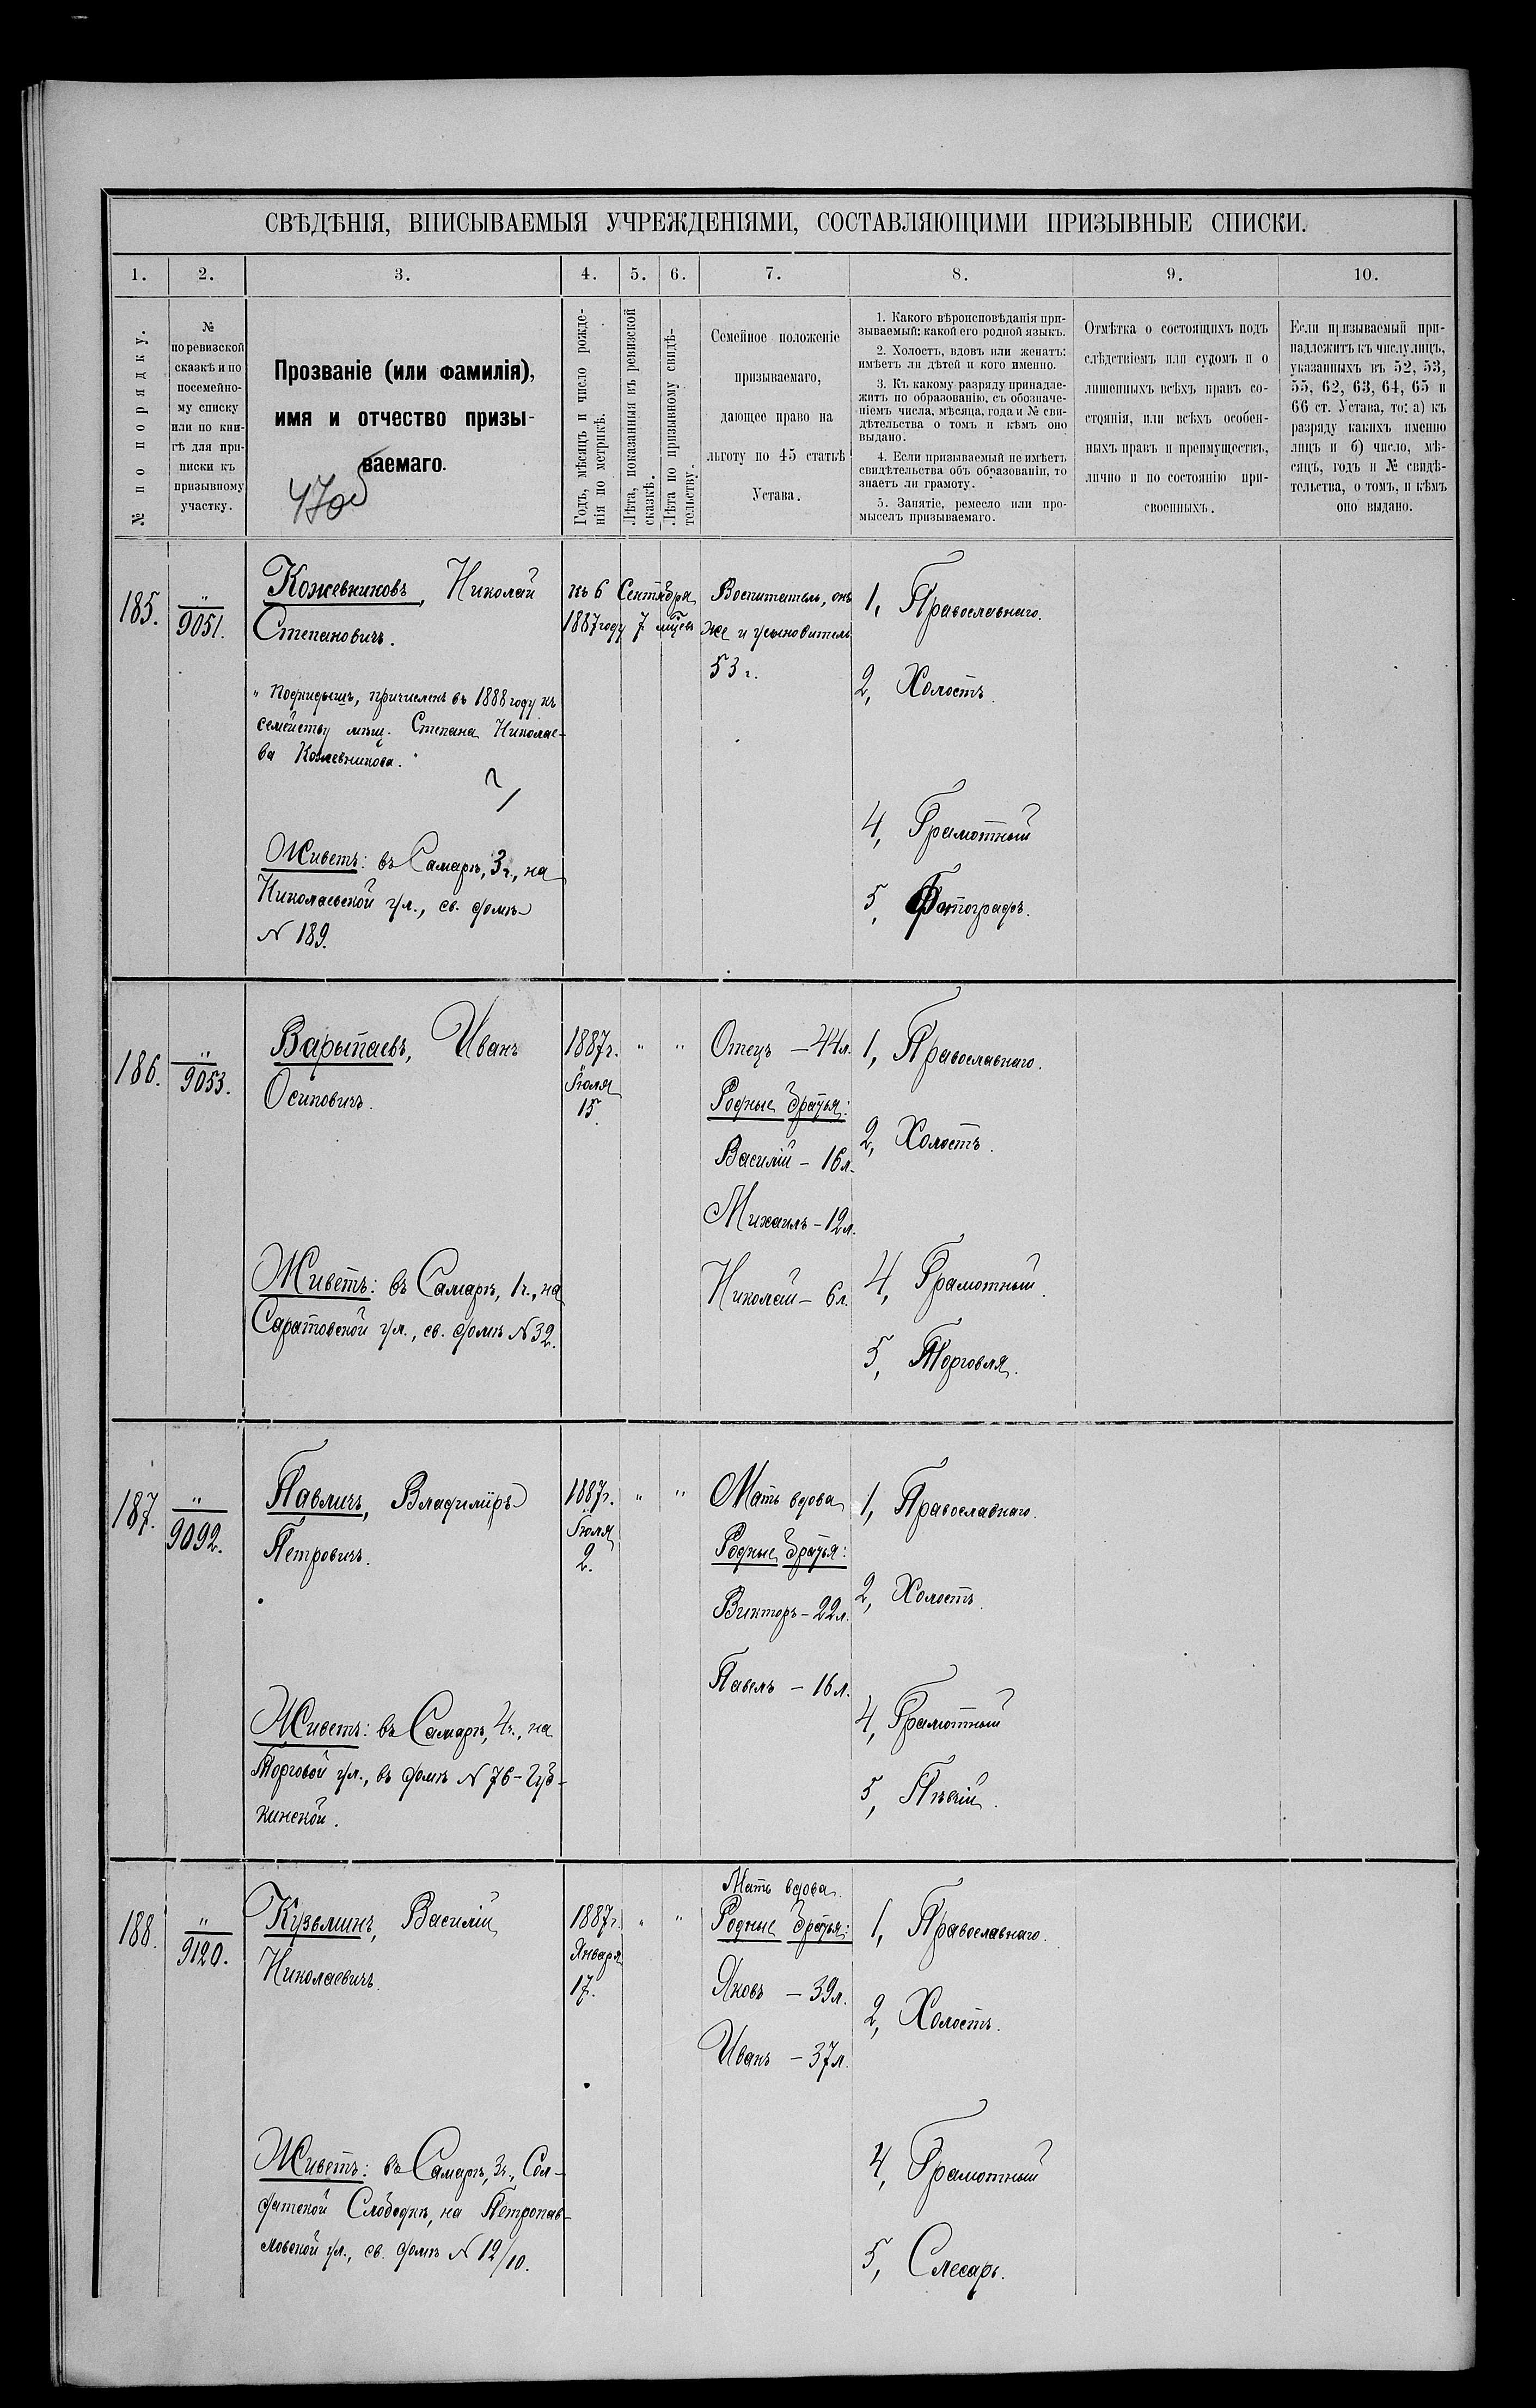 СВѢДѢНІЯ, ВПИСЫВАЕМЫЯ УЧРЕЖДЕНІЯМИ, СОСТАВЛЯЮЩИМИ ПРИЗЫВНЫЕ СПИСКИ.
1. 2. 3. 4. 5. 6. 7. 8. 9. 10.
№ по порядку.
№
по ревизской
сказкѣ и по
посемейно-
му списку
или по кни-
гѣ для при-
писки къ
призывному
участку.
Прозваніе (или фамилія),
имя и отчество призы-
ваемаго.
47об
Годъ, мѣсяцъ и число рожде-
нія по метрикѣ.
Лѣта, показанныя въ ревизской
сказкѣ.
Лѣта по призывному свидѣ-
тельству.
Семейное положеніе
призываемаго,
дающее право на
льготу по 45 статьѣ
Устава.
1. Какого вѣроисповѣданія при-
зываемый; какой его родной языкъ.
2. Холостъ, вдовъ или женатъ;
имѣетъ ли дѣтей и кого именно.
3. Къ какому разряду принадле-
житъ по образованію, съ обозначе-
ніемъ числа, мѣсяца, года и № сви-
дѣтельства о томъ и кѣмъ оно
выдано.
4. Если призываемый не имѣетъ
свидѣтельства объ образованіи, то
знаетъ ли грамоту.
5. Занятіе, ремесло или про-
мыселъ призываемаго.
Отмѣтка о состоящихъ подъ
слѣдствіемъ или судомъ и о
лишенныхъ всѣхъ правъ со-
стоянія, или всѣхъ особен-
ныхъ правъ и преимуществъ,
лично и по состоянію при-
своенныхъ.
Если призываемый при-
надлежитъ къ числу лицъ,
указанныхъ въ 52, 53,
55, 62, 63, 64, 65 и
66 ст. Устава, то: а) къ
разряду какихъ именно
лицъ и б) число, мѣ-
сяцъ, годъ и № свидѣ-
тельства, о томъ, и кѣмъ
оно выдано.
185.
"
9051.
Кожевниковъ, Николай
Степановичъ.
"Подкидышъ, причисленъ въ 1888 году къ
семейству мѣщ. Степана Николае-
ва Кожевникова."
Живетъ: въ Самарѣ, 3 ч., на
Николаевской ул., св. домѣ
№ 189.
къ 6 Сентября
1887 году 7 мѣсяц
Воспитатель, онъ
же и усыновитель
53 г.
1, Православнаго.
2, Холостъ.
4, Грамотный
5, Фотографъ.
186.
"
9053.
Варытаевъ, Иванъ
Осиповичъ.
Живетъ: въ Самарѣ, 1 ч., на
Саратовской ул., св. домѣ № 32.
1887 г.
Іюля
15.
" "
Отецъ – 44 л.
Родные братья:
Василій – 16 л.
Михаилъ – 12 л.
Николай – 6 л.
1, Православнаго.
2, Холостъ.
4, Грамотный.
5, Торговля.
187.
"
9092.
Павличъ, Владиміръ
Петровичъ.
Живетъ: въ Самарѣ, 4 ч., на
Торговой ул., въ домѣ № 76 – Губ-
кинской.
1887 г.
Іюля
2.
" "
Мать вдова
Родные братья:
Викторъ – 22 л.
Павелъ – 16 л.
1, Православнаго.
2, Холостъ.
4, Грамотный
5, Пѣвчій.
188.
"
9120.
Кузьминъ, Василій
Николаевичъ.
Живетъ: въ Самарѣ, 3 ч., Сол-
датской Слободкѣ, на Петропав-
ловской ул., св. домѣ № 12/10.
1887 г.
Января
17.
" "
Мать вдова.
Родные братья:
Яковъ – 39 л.
Иванъ – 37 л.
1, Православнаго.
2, Холостъ.
4, Грамотный
5, Слесарь.